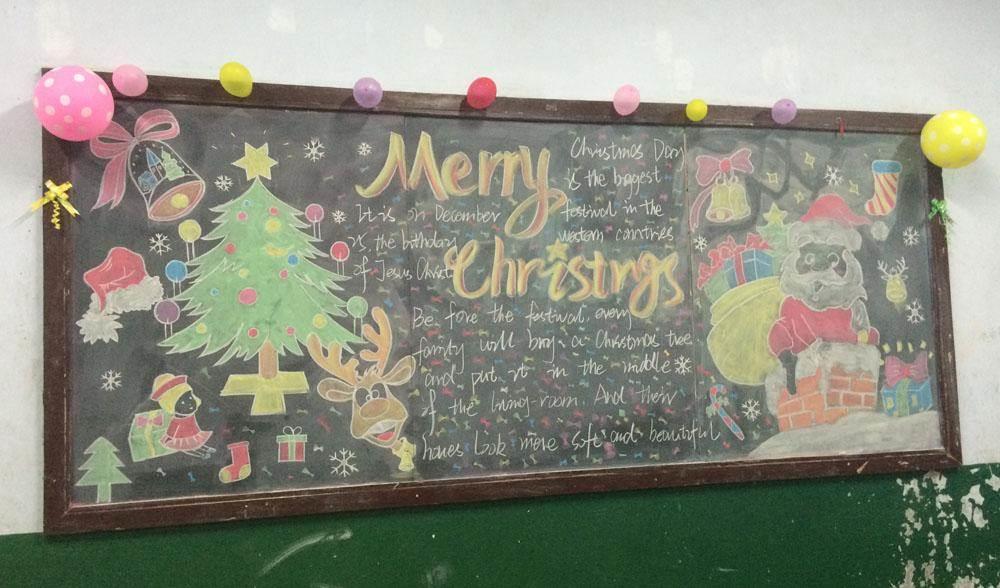 Merry
Christmas Day
is the biggest
festival in the
western countries
It is on December
25 the birthday
of Jesus Christ
Christmas
Be fore the festival every
family will bring a Christmas tree
and put it in the middle
of the living-room. And their
houses look more soft and beautiful